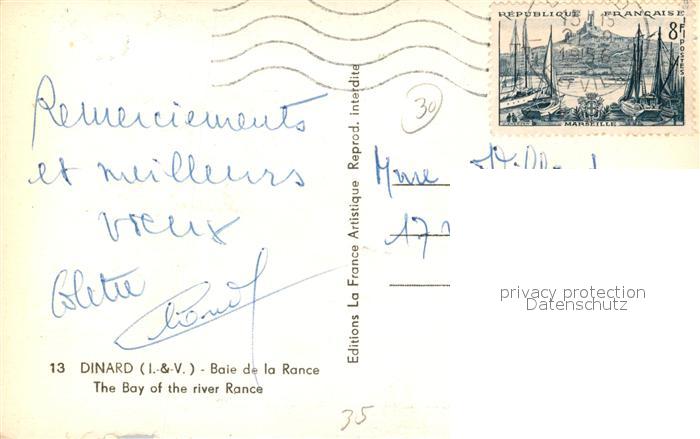 Remerciements
et meilleurs
vœux
Colette
13 DINARD (I.-&-V.) - Baie de la Rance
The Bay of the river Rance
Editions La France Artistique Reprod. interdite
30
RÉPUBLIQUE FRANÇAISE
8F
POSTES
MARSEILLE
Mme
17
privacy protection
Datenschutz
35